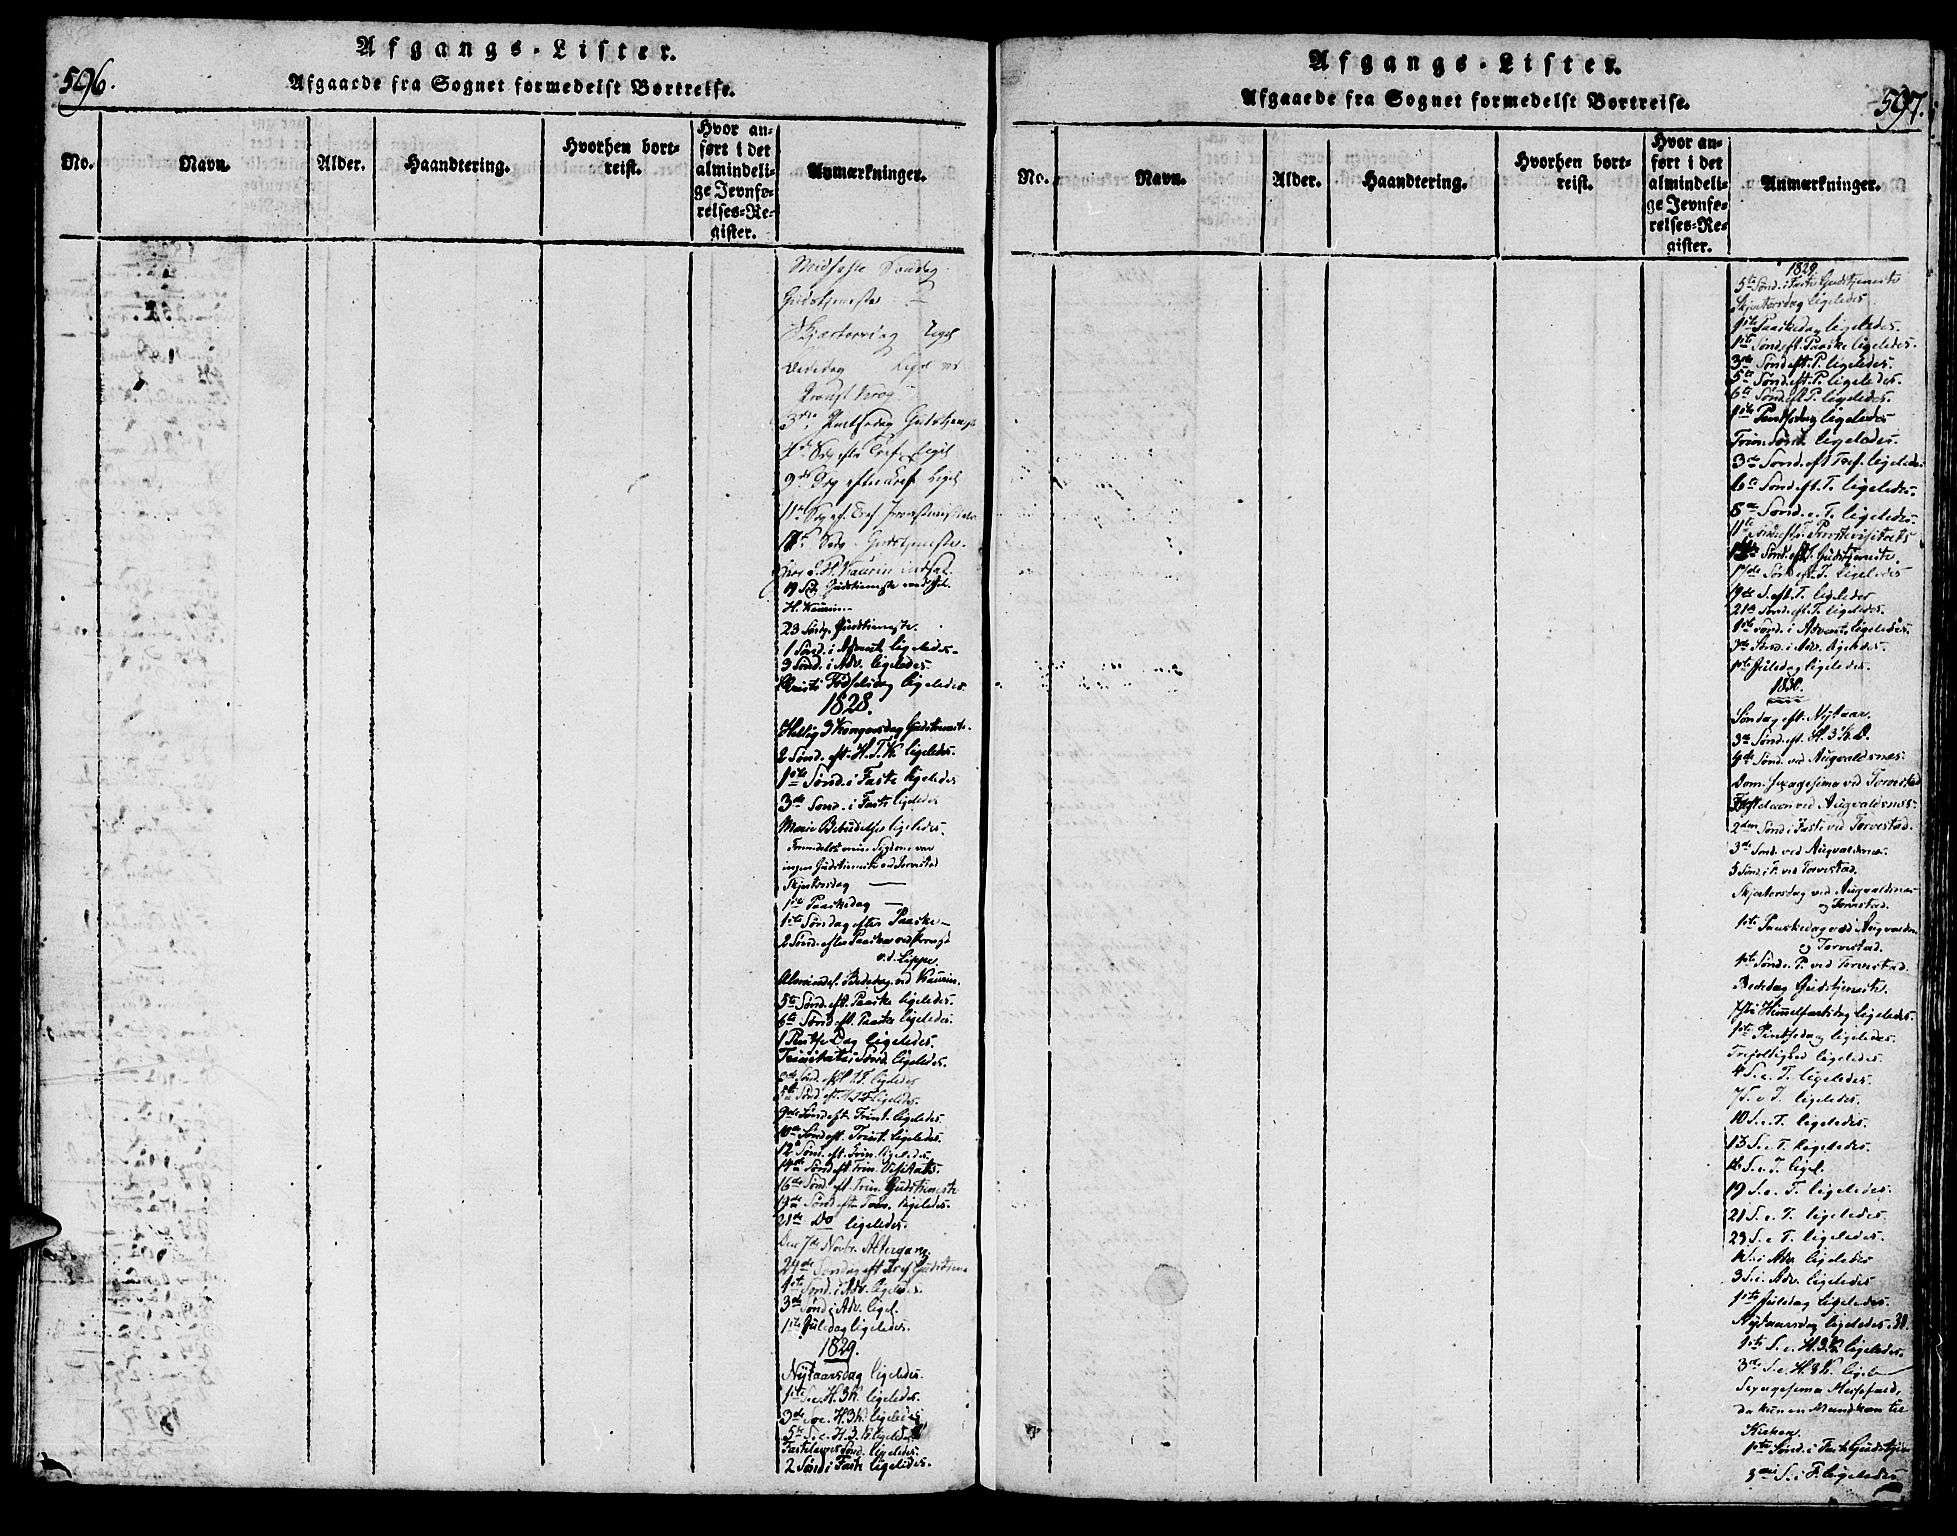 596.
Afgangs-Lister.
Afgaaede fra Sognet formedelst Bortreise.
No.
Navn.
Alder.
Haandtering.
Hvorhen bort-
reist.
Hvor an-
ført i det
almindeli-
ge Jevnfø-
relses-Re-
gister.
Anmærkninger.
Midfaste Søndag
Gudstjeneste
Skjærtorsdag Ligel
Bededag Ligel
3die Pintsedag Gudstjeneste
9de Søg efter Tref Ligel
17de Søndag Gudstjeneste.
19 Sdg Gudstieneste ved
H. Kaurin
23 Søndg. Gudstieneste.
1 Sønd. i Advent ligeledes.
3 Sønd. i Adv. ligeledes.
Christi Fødselsdag ligeledes.
1828.
Hellig 3 Kongersdag Gudstieneste.
2 Sønd. eft. H. T. K. ligeledes.
1ste Sønd. i Faste ligeledes
3de Sønd. i Faste ligeledes
Mariæ Bebudelses ligeledes.
Formedelst min Sygdom var
ingen Gudstieneste ved Torvestad
Skjertorsdag —
1ste Paaskedag —
1ste Søndag efter Paaske —
2 Sønd. efter Paaske ved Provst
v. d. Lippe.
Almindel. Bededag ved Kaurin.
5te Sønd. eft. Paaske ligeledes.
6te Sønd. eft. Paaske ligeledes.
1 Pintse Dag ligeledes.
Trinitatis Sønd. ligeledes.
3de Sønd. eft. H. T. F. ligeledes
5te Sønd. eft. H. T. F. ligeledes.
9de Sønd. eft. Trinit. ligeledes.
10de Sønd. eft. Trinit. ligeledes.
12 Sønd. eft. Trin. ligeledes.
14de Sønd. eft. Trin. Visitats.
16de Sønd. eft. Trin. Gudstieneste
19de Sønd. eft. Trin. ligeledes.
21de Do ligeledes.
Den 7de Novbr. Altergang
24de Søndag eft. Tref Gudstiene
1ste Sønd. i Adv. ligeledes.
3de Sønd. i Adv. ligel.
1ste Juledag ligeledes.
1829.
Nÿtaarsdag ligeledes.
1ste S. e. H. 3 K. ligeledes.
3de S. e. H. 3 K. ligeledes
5te S. e. H. 3. K. ligeledes
Fastelavns Sønd. ligeledes.
2 Sønd. i Faste ligeledes.
597.
Afgangs-Lister.
Afgaaede fra Sognet formedelst Bortreise.
No.
Navn.
Alder.
Haandtering.
Hvorhen bort-
reist.
Hvor an-
ført i det
almindeli-
ge Jevnfø-
relses-Re-
gister.
Anmærkninger.
1829.
5te Sønd. i Faste Gudstjeneste
Skjertorsdag ligeledes
1ste Paaskedag ligeledes.
1ste Sønd. eft. Paaske ligeledes.
3de Sønd. eft. P. ligeledes.
5te Sønd. eft. P. ligeledes.
6te Sønd. eft. P. ligeledes.
1ste Pintsedag ligeledes
Trin. Sønd. ligeledes.
3de Sønd. eft. Tref. ligeledes
6te Sønd. eft. T. ligeledes.
8de Sønd. e. T. ligeledes.
11te Sønd. eft. T. Provstevisitats
Sønd. eft. T. Gudstjeneste.
17de Sønd. eft. T. ligeledes
19de S. eft. T. ligeledes
21de Sønd. eft. T. ligeledes.
1ste Sønd. i Advent ligeledes.
3de Sønd. i Adv. ligeledes.
1ste Juledag ligeledes.
1830.
Søndag eft. Nÿtaar.
3de Sønd. eft. H. 3 K. D.
4de Sønd. ved Augvaldsnæs.
Dom. sexagesima ved Torvestad
Fastelavn ved Augvaldsnæs.
2den Sønd. i Faste ved Torvestad.
3de Sønd. ved Augvaldsnæs.
5 Sønd. i F. ved Torvestad.
Skjertorsdag ved Augvaldsnæs
og Torvestad.
1ste Paaskedag ved Augvaldsn
og Torvestad.
1ste Sønd. e. P. ved Torvestad.
Bededag Gudstjeneste.
Himmelfartsdag ligeledes.
1ste Pintsedag ligeledes.
Trefoltighed ligeledes.
4 S. e. T. ligeledes.
7 S. e. T. ligeledes.
10 S. e. T. ligeledes.
13 S. e. T. ligeledes.
16 S. e. T. ligel.
19 S. e. T. ligeledes.
21 S. e. T. ligeledes.
23 S. e. T. ligeledes.
i Adv. ligeledes
3 S. i Adv. ligeledes.
1ste Juledag ligeledes.
Nÿtaarsdag ligeledes. 31.
1ste S. e. H. 3 K. ligeledes.
3de S. e. H. 3 K. ligele
Sexagesima Messefald,
da kun en Mand kom til
Kirken.
1ste Sønd. i Faste Gudstjen
3die S. i F. ligeledes